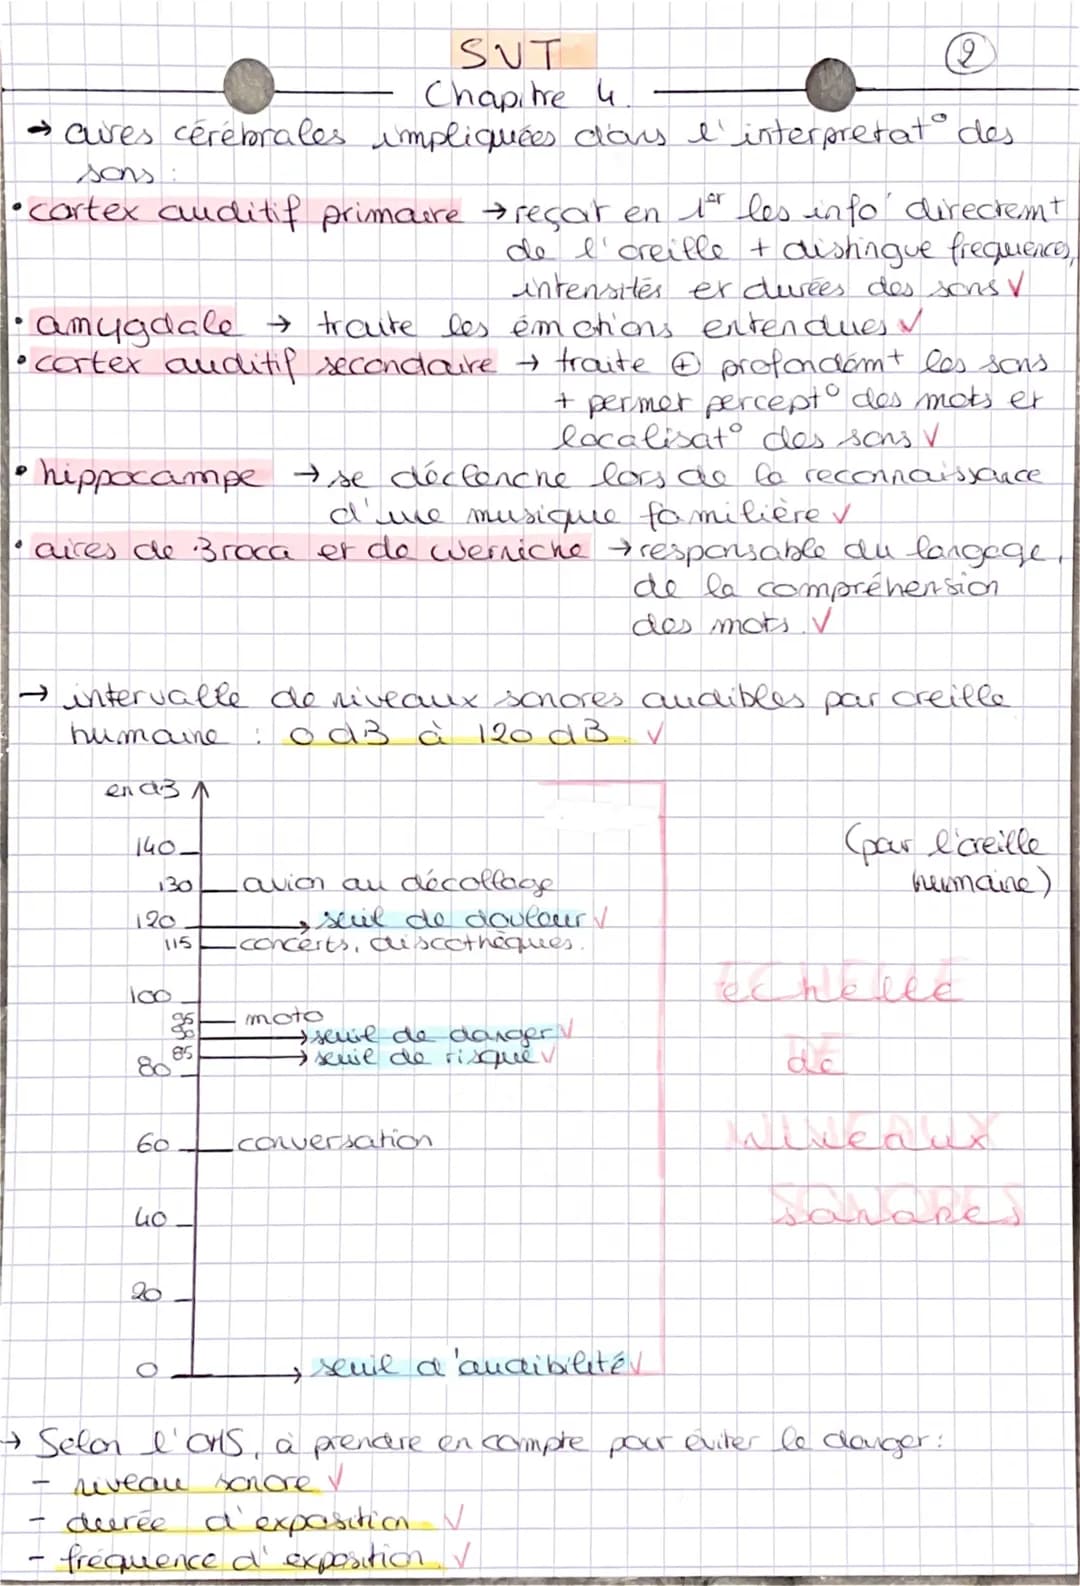 SVT
2
Chapitre 4.
→ aires cérébrales impliquées dans l'interpretat° des
sons :
• cortex auditif primaire → reçoit en 1er les info' directemt
de l'oreille + distingue frequences,
intensités et durées des sons √
• amygdale → traite les émotions entendues √
• cortex auditif secondaire → traite ⊕ profondémt les sons
+ permet percept° des mots et
localisat° des sons √
• hippocampe → se déclenche lors de la reconnaissance
d'une musique familière √
• aires de Broca et de Wernicke → responsable du langage,
de la compréhension
des mots. √
→ intervalle de niveaux sonores audibles par oreille
humaine : 0 dB à 120 dB. √
en dB
140
(par l'oreille
humaine)
130 avion au décollage
120 → seuil de douleur √
115 concerts, discothèques.
100
echelle
95 moto
90 → seuil de danger √
85 → seuil de risque √
80
de
60 conversation
niveaux
40
sonores
20
0 → seuil d'audibilité √
→ Selon l'OMS, à prendre en compte pour éviter le danger :
- niveau sonore √
- durée d'exposition √
- fréquence d'exposition. √